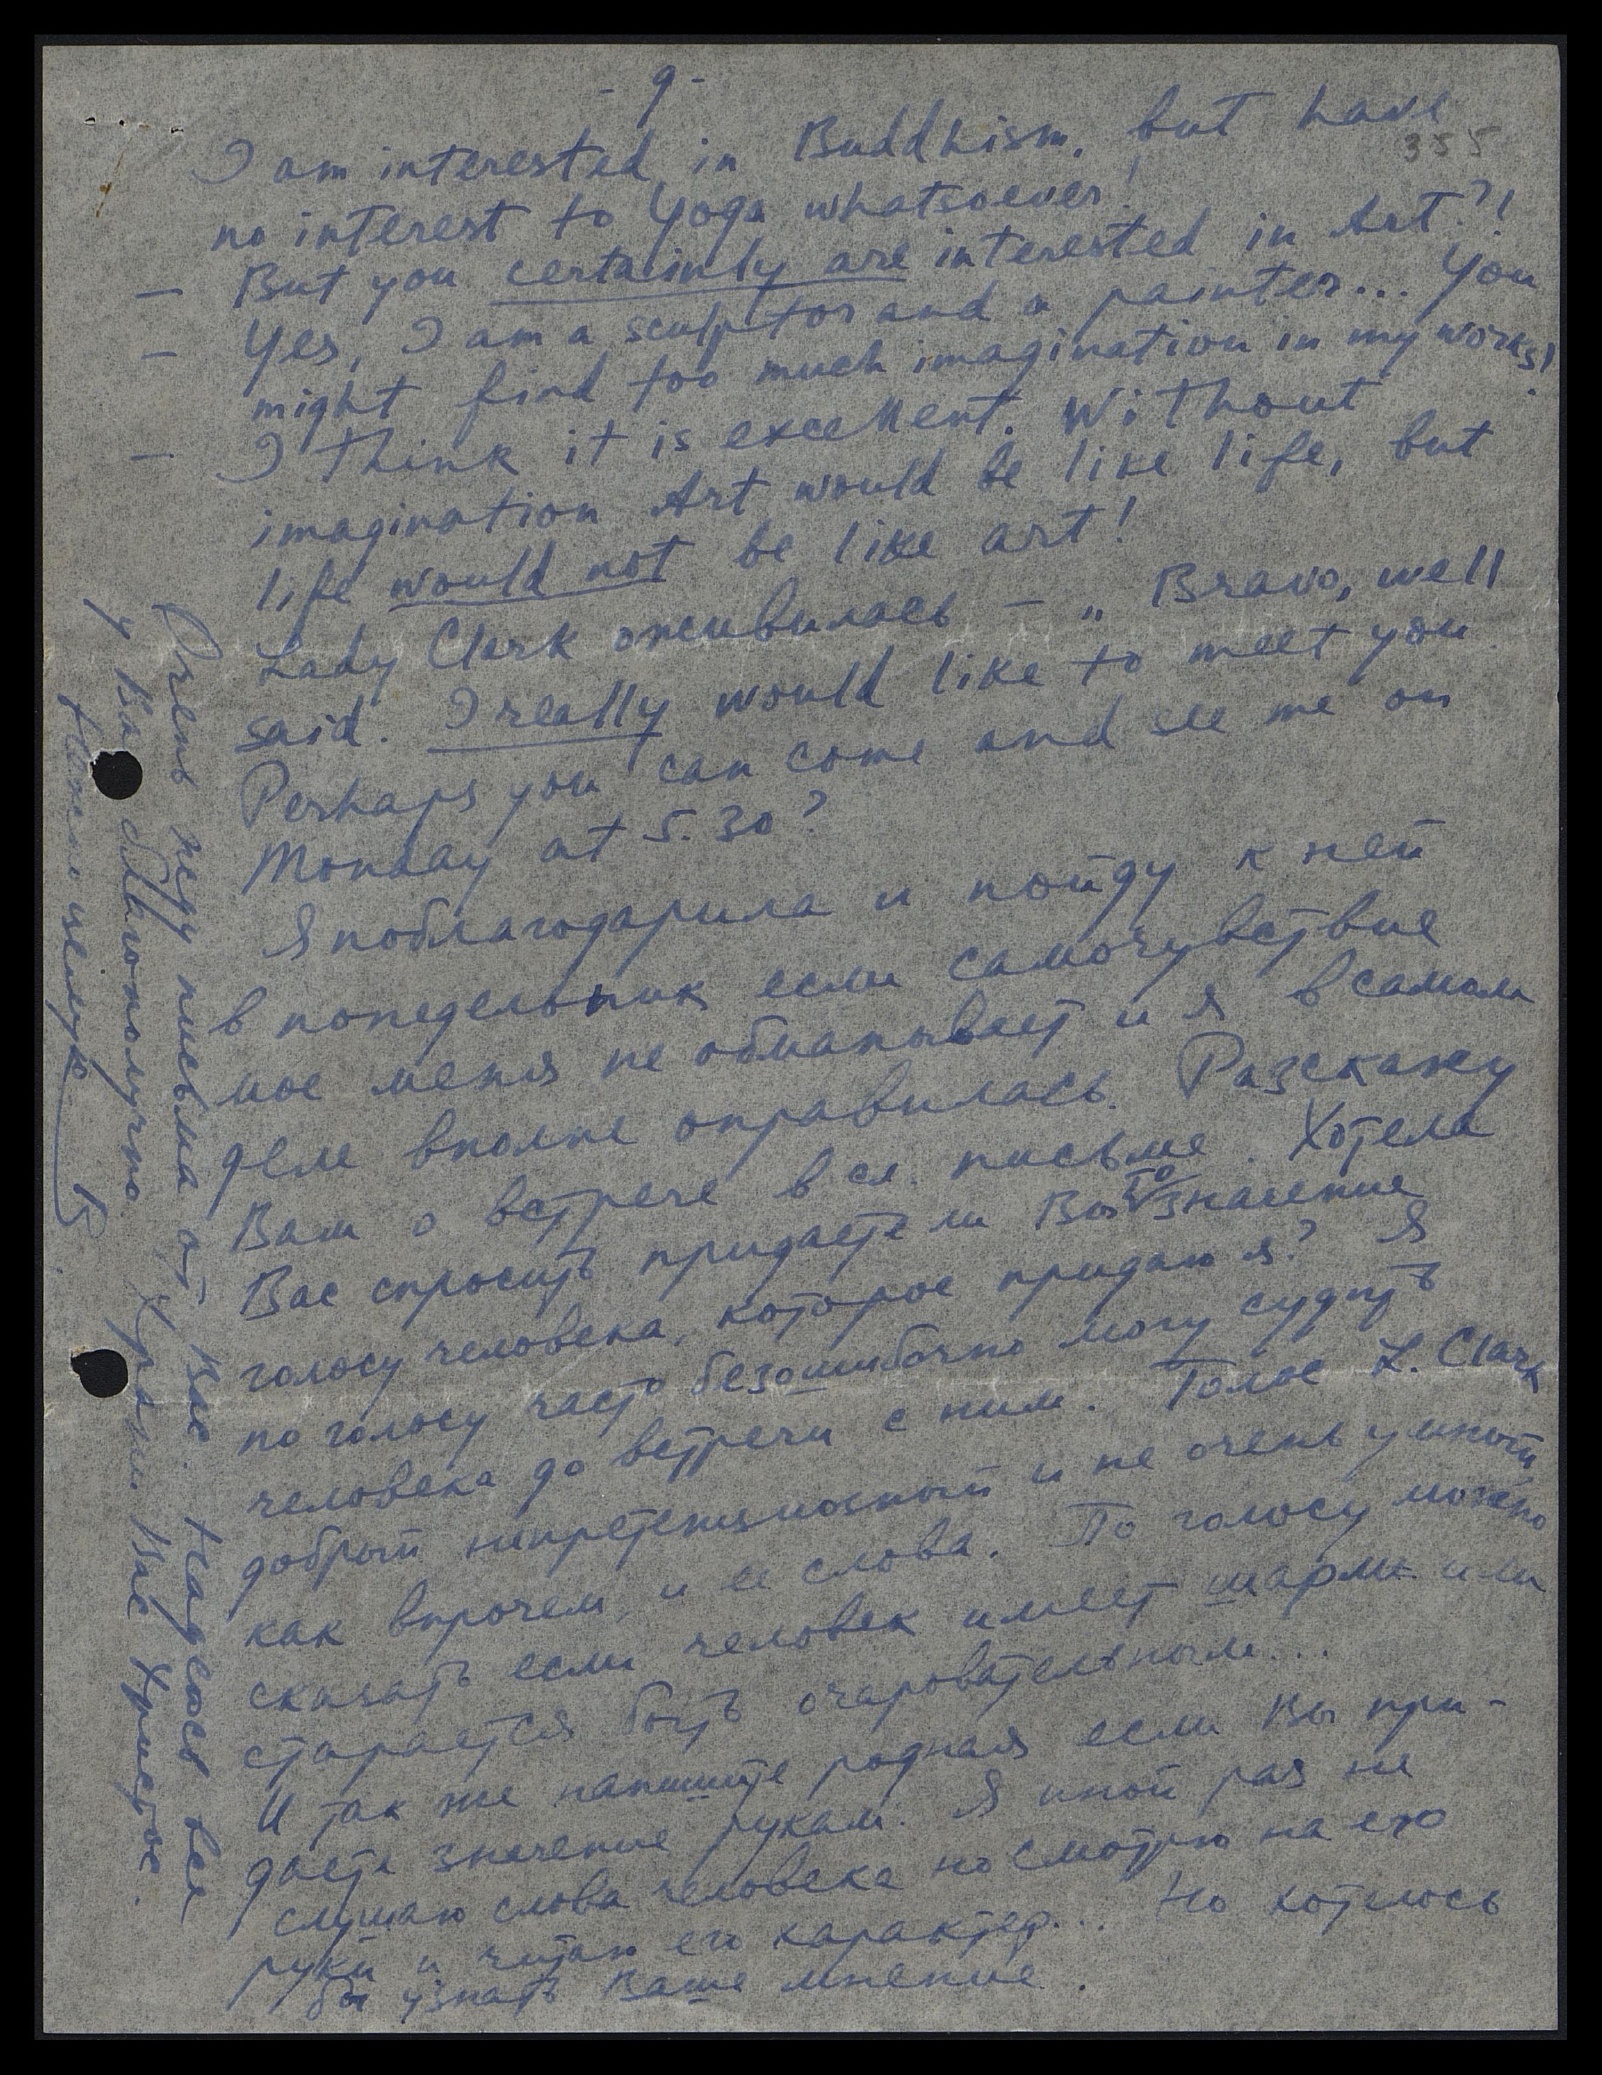 - 9 -
355
I am interested in Buddhism, but have
no interest to Yoga whatsoever!
— But you certainly are interested in Art?!
— Yes, I am a sculptor and a painter... You
might find too much imagination in my works!
— I think it is excellent. Without
imagination Art would be like life, but
life would not be like art!
Lady Clark оживилась — „Bravo, well
said. I really would like to meet you
Perhaps you can come and see me on
Monday at 5.30?
Я поблагодарила и пойду к ней
в понедельник если самочувствие
мое меня не обманывает и я в самом
деле вполне оправилась. Разскажу
Вам о встрече в сл. письме. Хотела
Вас спросить придаете ли Вы то значение
голосу человека, которое придаю я? Я
по голосу часто безошибочно могу судить
человека до встречи с ним. Голос L. Clark
добрый непретенциозный и не очень умный
как впрочем, и ее слова. По голосу можно
сказать если человек имеет шарм или
старается быть очаровательным...
И так же напишите родная если Вы при-
даете значение рукам. Я иной раз не
слушаю слова человека но смотрю на его
руки и читаю его характер... Но хотелось
бы узнать Ваше мнение.
Очень жду письма от Вас. Надеюсь все
у Вас благополучно. Храни Вас Христос.
Нежно целую В.